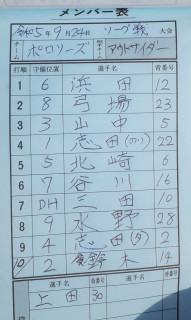 メンバー表
令和5年9月24日 リーグ戦 大会
チーム ポロリーズ 相手チーム アウトサイダー
打順 守備位置 選手名 背番号
1 6 浜田 12
2 8 弓場 23
3 3 山中 5
4 1 志田(のり) 22
5 5 北崎 6
6 7 谷川 16
7 DH 三田 10
8 9 水野 28
9 4 志田(タ) 2
10 2 鈴木 14
選手名 背番号 選手名 背番号
上田 30